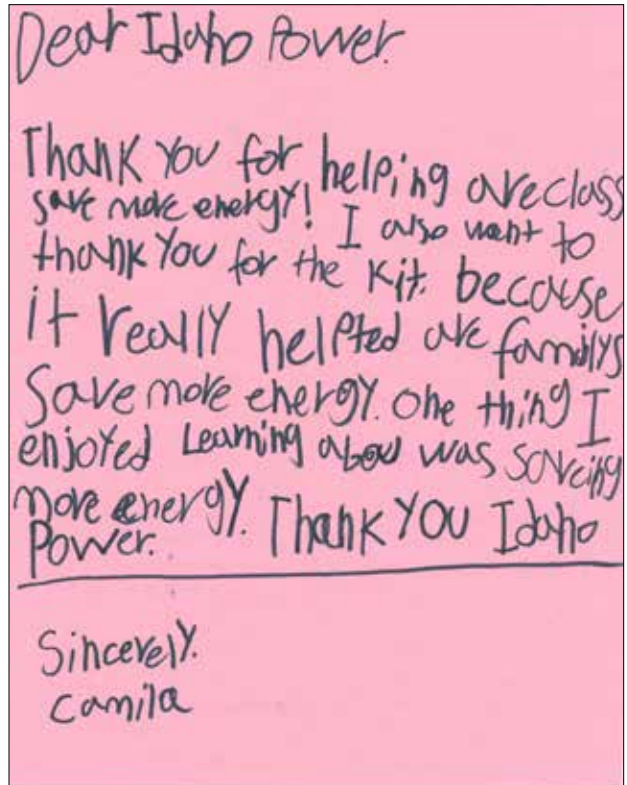 Dear Idaho Power.
Thank You for helping are class
save more energy! I also want to
thank You for the Kit. because
it really helpted are familys
Save more energy. One thing I
enjoyed Learning abou was saveing
more energy. Thank YOU Idaho
Power.
Sincerely.
Camila